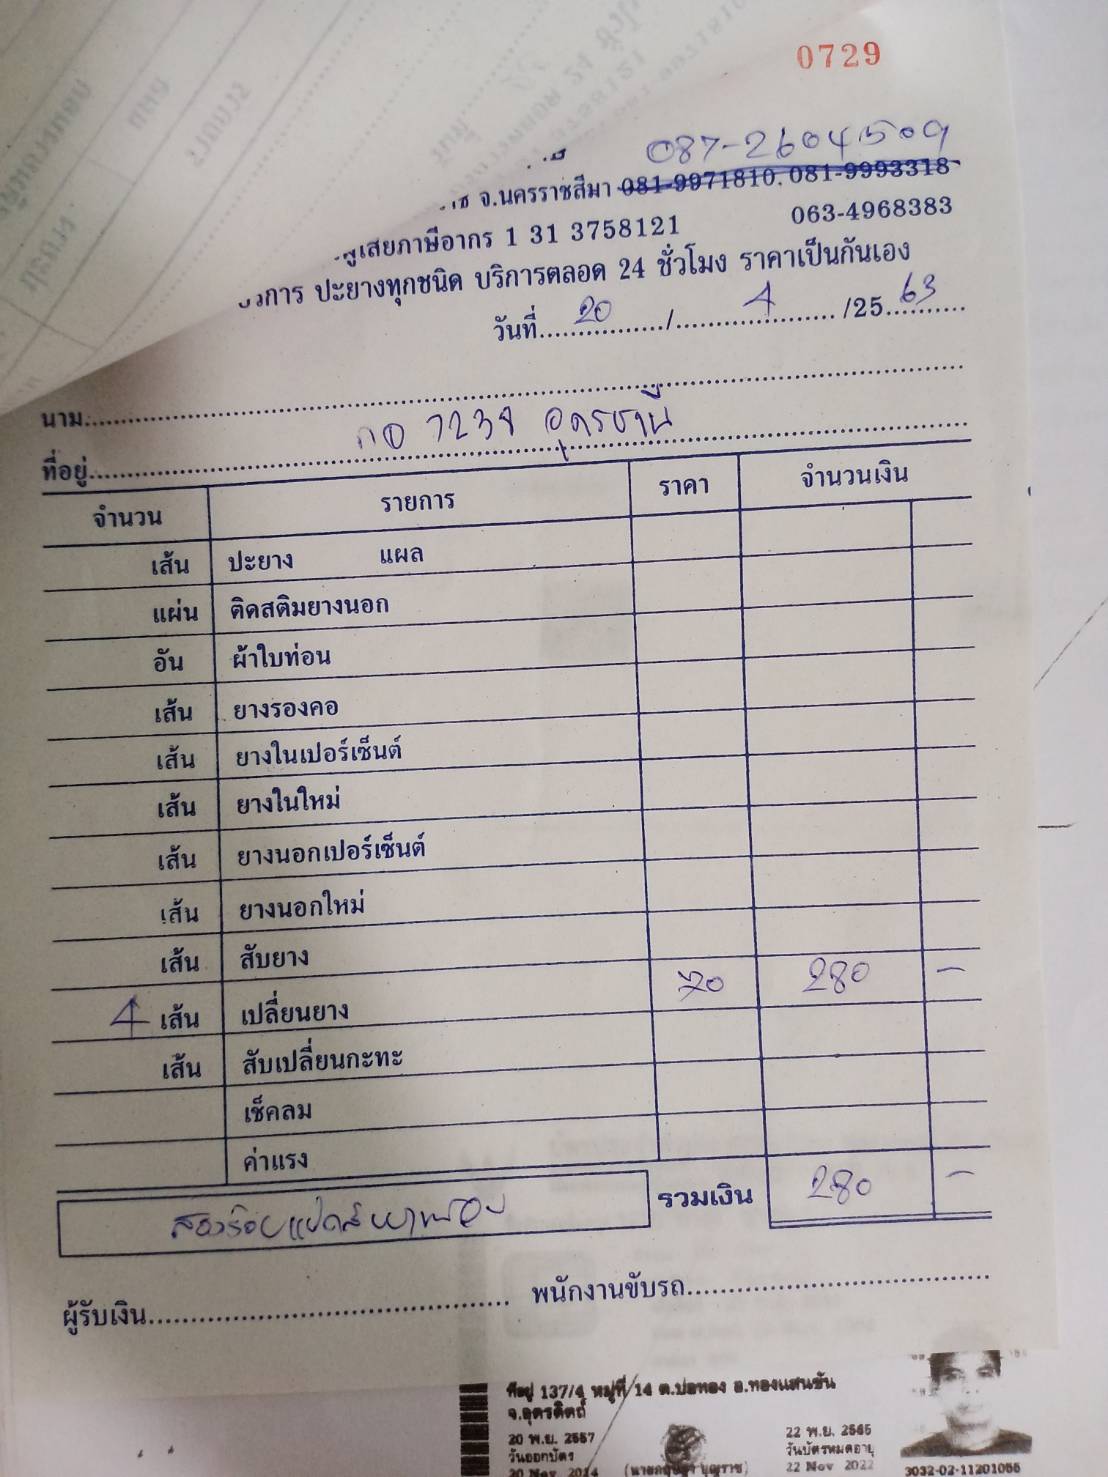 0729
087-2604509
จ.นครราชสีมา 081-9971810, 081-9993318
ผู้เสียภาษีอากร 1 31 3758121 063-4968383
ปะยางทุกชนิด บริการตลอด 24 ชั่วโมง ราคาเป็นกันเอง
วันที่ 20 / 4 /25 63
นาม
ที่อยู่ 7238 อุดรธานี
จำนวน รายการ ราคา จำนวนเงิน
เส้น ปะยาง แผล
แผ่น ติดสติมยางนอก
อัน ผ้าใบท่อน
เส้น ยางรองคอ
เส้น ยางในเปอร์เซ็นต์
เส้น ยางในใหม่
เส้น ยางนอกเปอร์เซ็นต์
เส้น ยางนอกใหม่
เส้น สับยาง
4 เส้น เปลี่ยนยาง 70 280 -
เส้น สับเปลี่ยนกะทะ
เช็คลม
ค่าแรง
รวมเงิน 280 -
สองร้อยแปดสิบบาท
ผู้รับเงิน พนักงานขับรถ
ที่อยู่ 137/4 หมู่ที่ 14 ต.บ่อทอง อ.ทองแสนขัน
จ.อุตรดิตถ์
20 พ.ย. 2557 22 พ.ย. 2565
วันออกบัตร วันบัตรหมดอายุ
20 Nov 2014 22 Nov 2022
3032-02-11201055